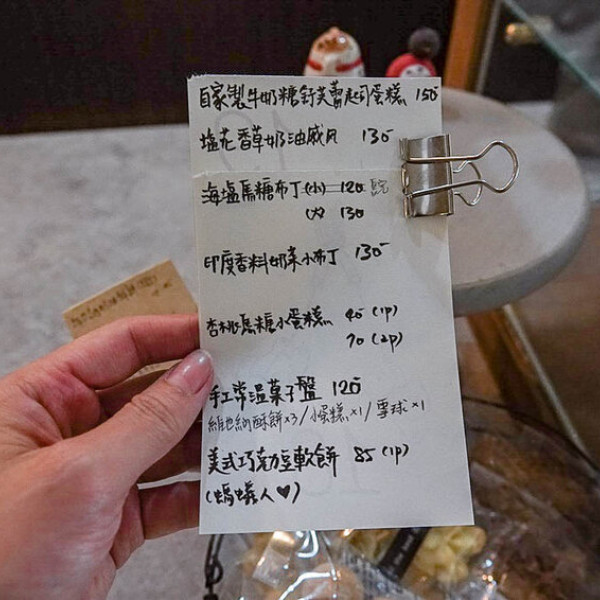 自家製牛奶糖舒芙蕾起司蛋糕 150
塩花香草奶油威風 130
海塩焦糖布丁(小) 120 完
(大) 130
印度香料奶茶小布丁 130
杏桃焦糖小蛋糕 40 (1p)
70 (2p)
手工常溫菓子盤 120
維也納酥餅×3/小蛋糕×1/雪球×1
美式巧克力豆軟餅 85 (1p)
(螞蟻人♥)